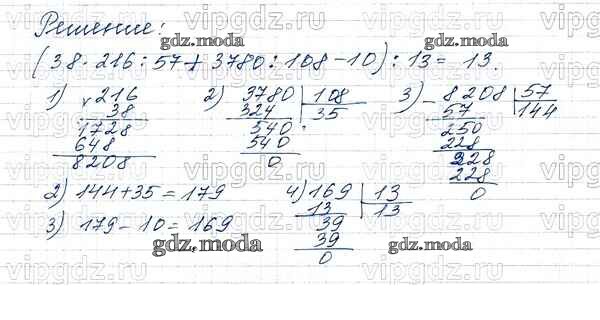 Решение:
(38·216:57+3780:108-10):13= 13.
1) ×216
38
1728
648
8208
2) 3780 | 108
324 35
540
540
0
3) -8208 | 57
57 144
250
228
228
228
0
2) 144+35=179
3) 179-10=169
4) 169 | 13
13 13
39
39
0
gdz.moda
gdz.moda
gdz.moda
gdz.moda
gdz.moda
vipgdz.ru